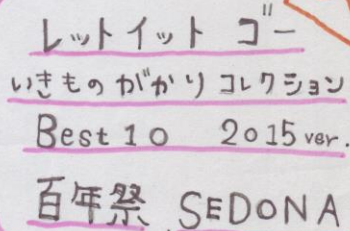 レットイット ゴー
いきものがかり コレクション
Best 10 2015 ver.
百年祭 SEDONA